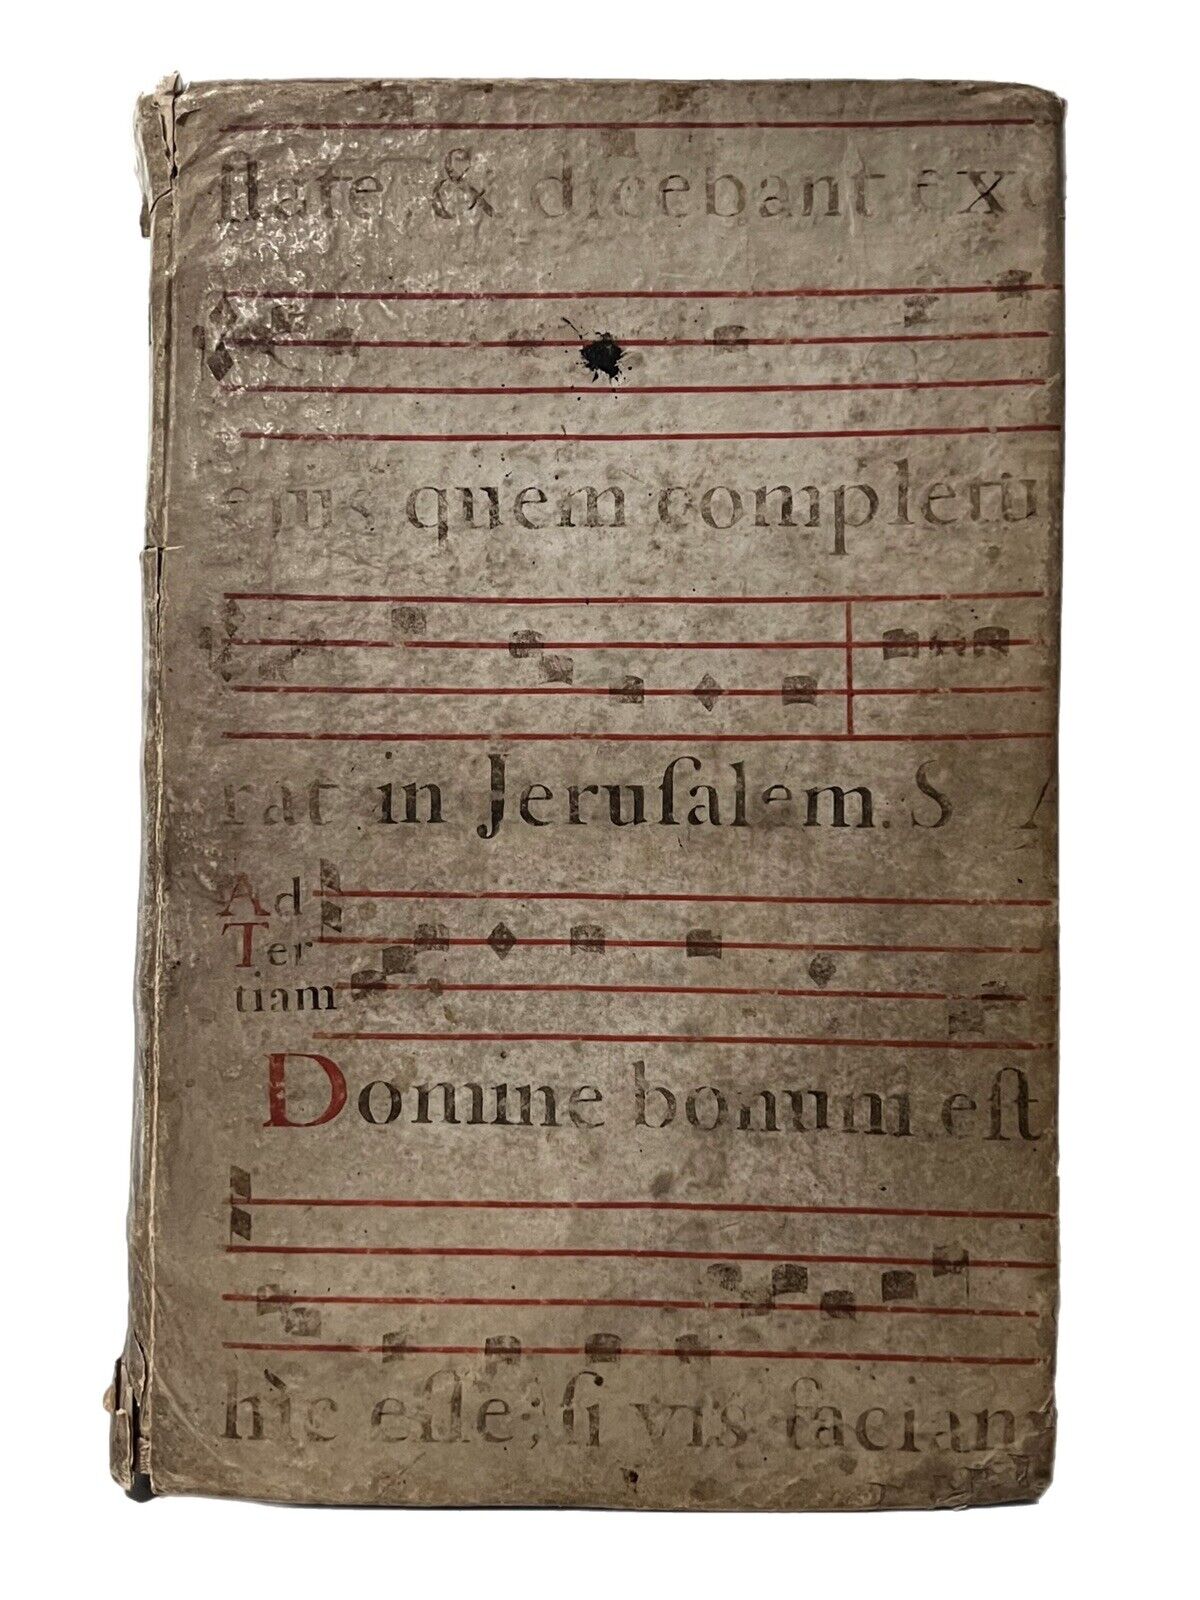 ſtate, & dicebant exc
ejus quem completu
rat in Jeruſalem. S A
Ad
Ter
tiam
Domine bonum eſt
hìc eſſe; ſi vis faciam